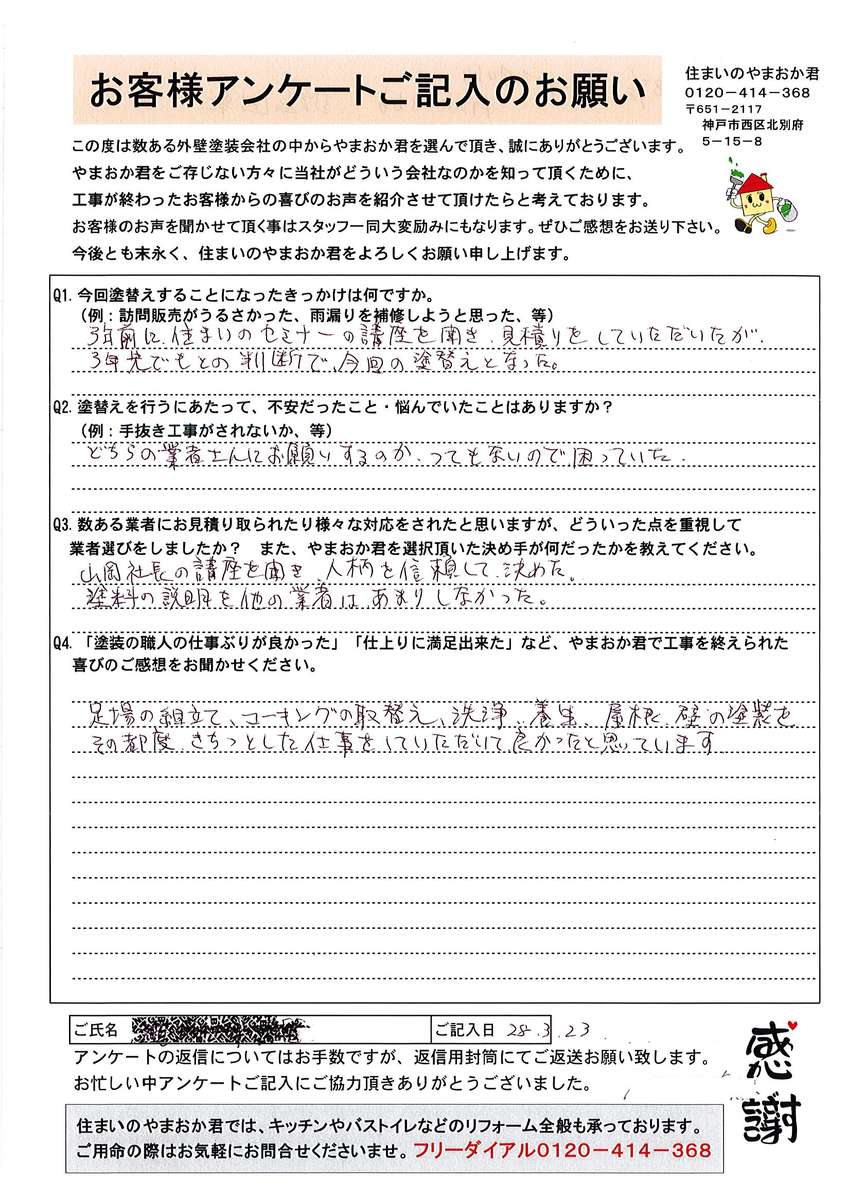 お客様アンケートご記入のお願い
住まいのやまおか君
0120－414－368
〒651－2117
神戸市西区北別府
5－15－8
この度は数ある外壁塗装会社の中からやまおか君を選んで頂き、誠にありがとうございます。
やまおか君をご存じない方々に当社がどういう会社なのかを知って頂くために、
工事が終わったお客様からの喜びのお声を紹介させて頂けたらと考えております。
お客様のお声を聞かせて頂く事はスタッフ一同大変励みにもなります。ぜひご感想をお送り下さい。
今後とも末永く、住まいのやまおか君をよろしくお願い申し上げます。
Q1. 今回塗替えすることになったきっかけは何ですか。
（例：訪問販売がうるさかった、雨漏りを補修しようと思った、等）
3年前に、住まいのセミナーの講座を聞き、見積りをしていただいたが、
3年先でもとの判断で、今回の塗替えとなった。
Q2. 塗替えを行うにあたって、不安だったこと・悩んでいたことはありますか？
（例：手抜き工事がされないか、等）
どちらの業者さんにお願いするのか、つてもないので困っていた。
Q3. 数ある業者にお見積り取られたり様々な対応をされたと思いますが、どういった点を重視して
業者選びをしましたか？　また、やまおか君を選択頂いた決め手が何だったかを教えてください。
山岡社長の講座を聞き、人柄を信頼して決めた。
塗料の説明を他の業者はあまりしなかった。
Q4. 「塗装の職人の仕事ぶりが良かった」「仕上りに満足出来た」など、やまおか君で工事を終えられた
喜びのご感想をお聞かせください。
足場の組立て、コーキングの取替え、洗浄、養生、屋根、壁の塗装を
その都度、きちっとした仕事をしていただいて良かったと思っています
ご氏名
ご記入日 28.3.23
アンケートの返信についてはお手数ですが、返信用封筒にてご返送お願い致します。
お忙しい中アンケートご記入にご協力頂きありがとうございました。
感謝
住まいのやまおか君では、キッチンやバストイレなどのリフォーム全般も承っております。
ご用命の際はお気軽にお問合せくださいませ。フリーダイアル0120－414－368